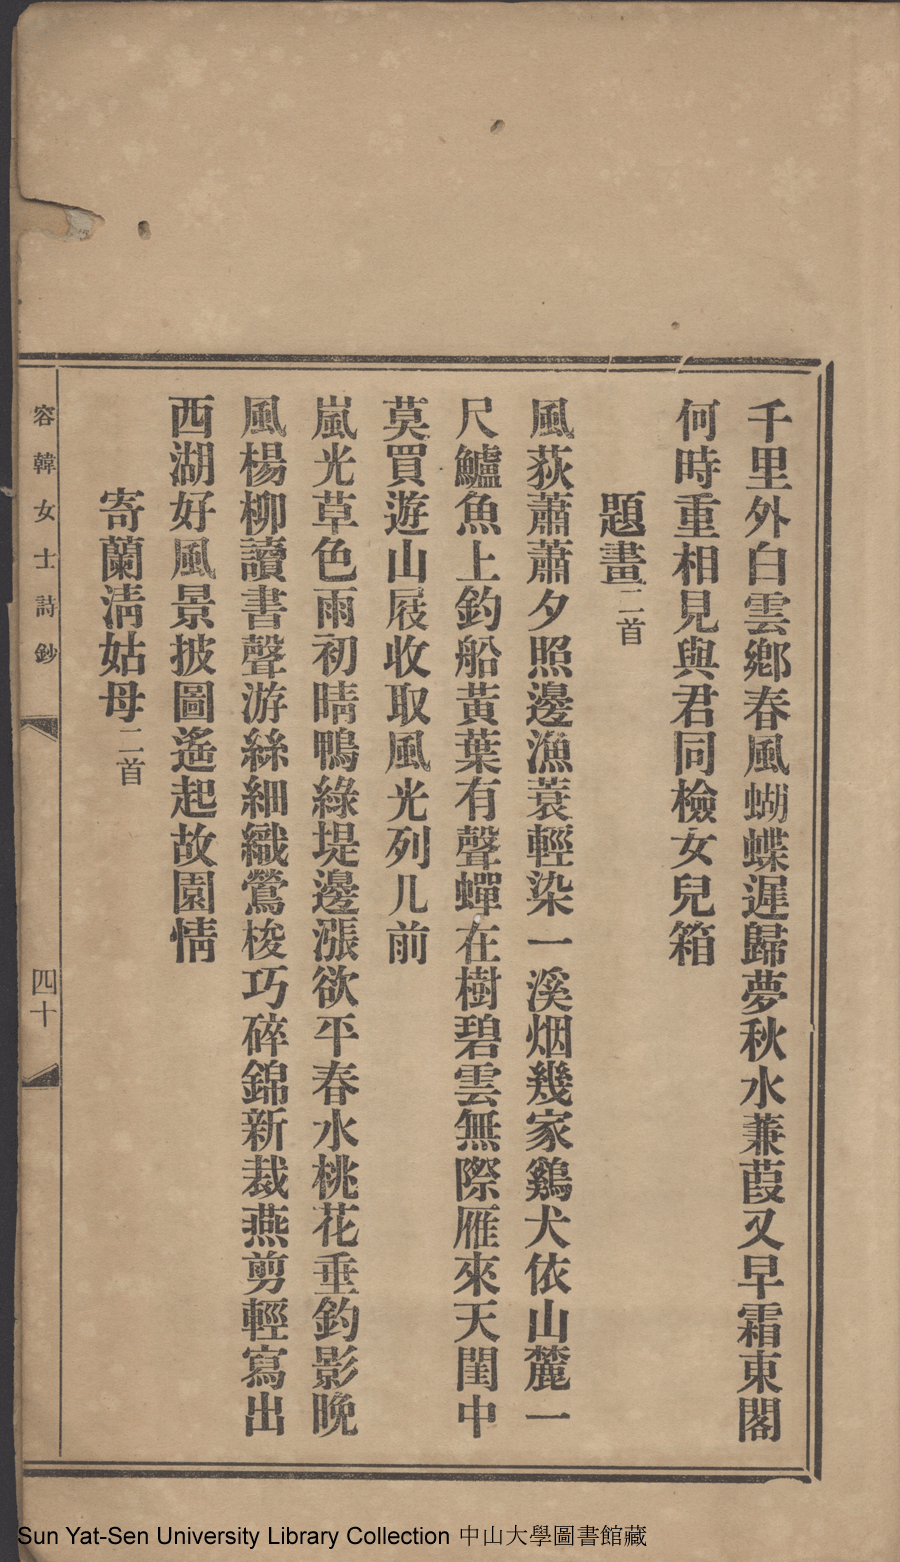 千里外白雲鄉春風蝴蝶遲歸夢秋水蒹葭又早霜東閣
何時重相見與君同檢女兒箱
題畫二首
風荻蕭蕭夕照邊漁蓑輕染一溪烟幾家鷄犬依山麓一
尺鱸魚上釣船黃葉有聲蟬在樹碧雲無際雁來天閨中
莫買遊山屐收取風光列几前
嵐光草色雨初晴鴨綠堤邊漲欲平春水桃花垂釣影晚
風楊柳讀書聲游絲細織鶯梭巧碎錦新裁燕剪輕寫出
西湖好風景披圖遙起故園情
寄蘭清姑母二首
容韓女士詩鈔
四十
Sun Yat-Sen University Library Collection 中山大學圖書館藏